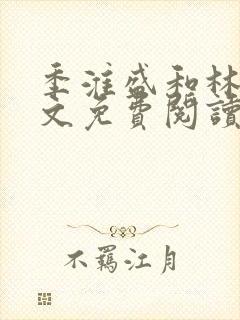 季淮盛和林
文免費閱讀
不羈江月